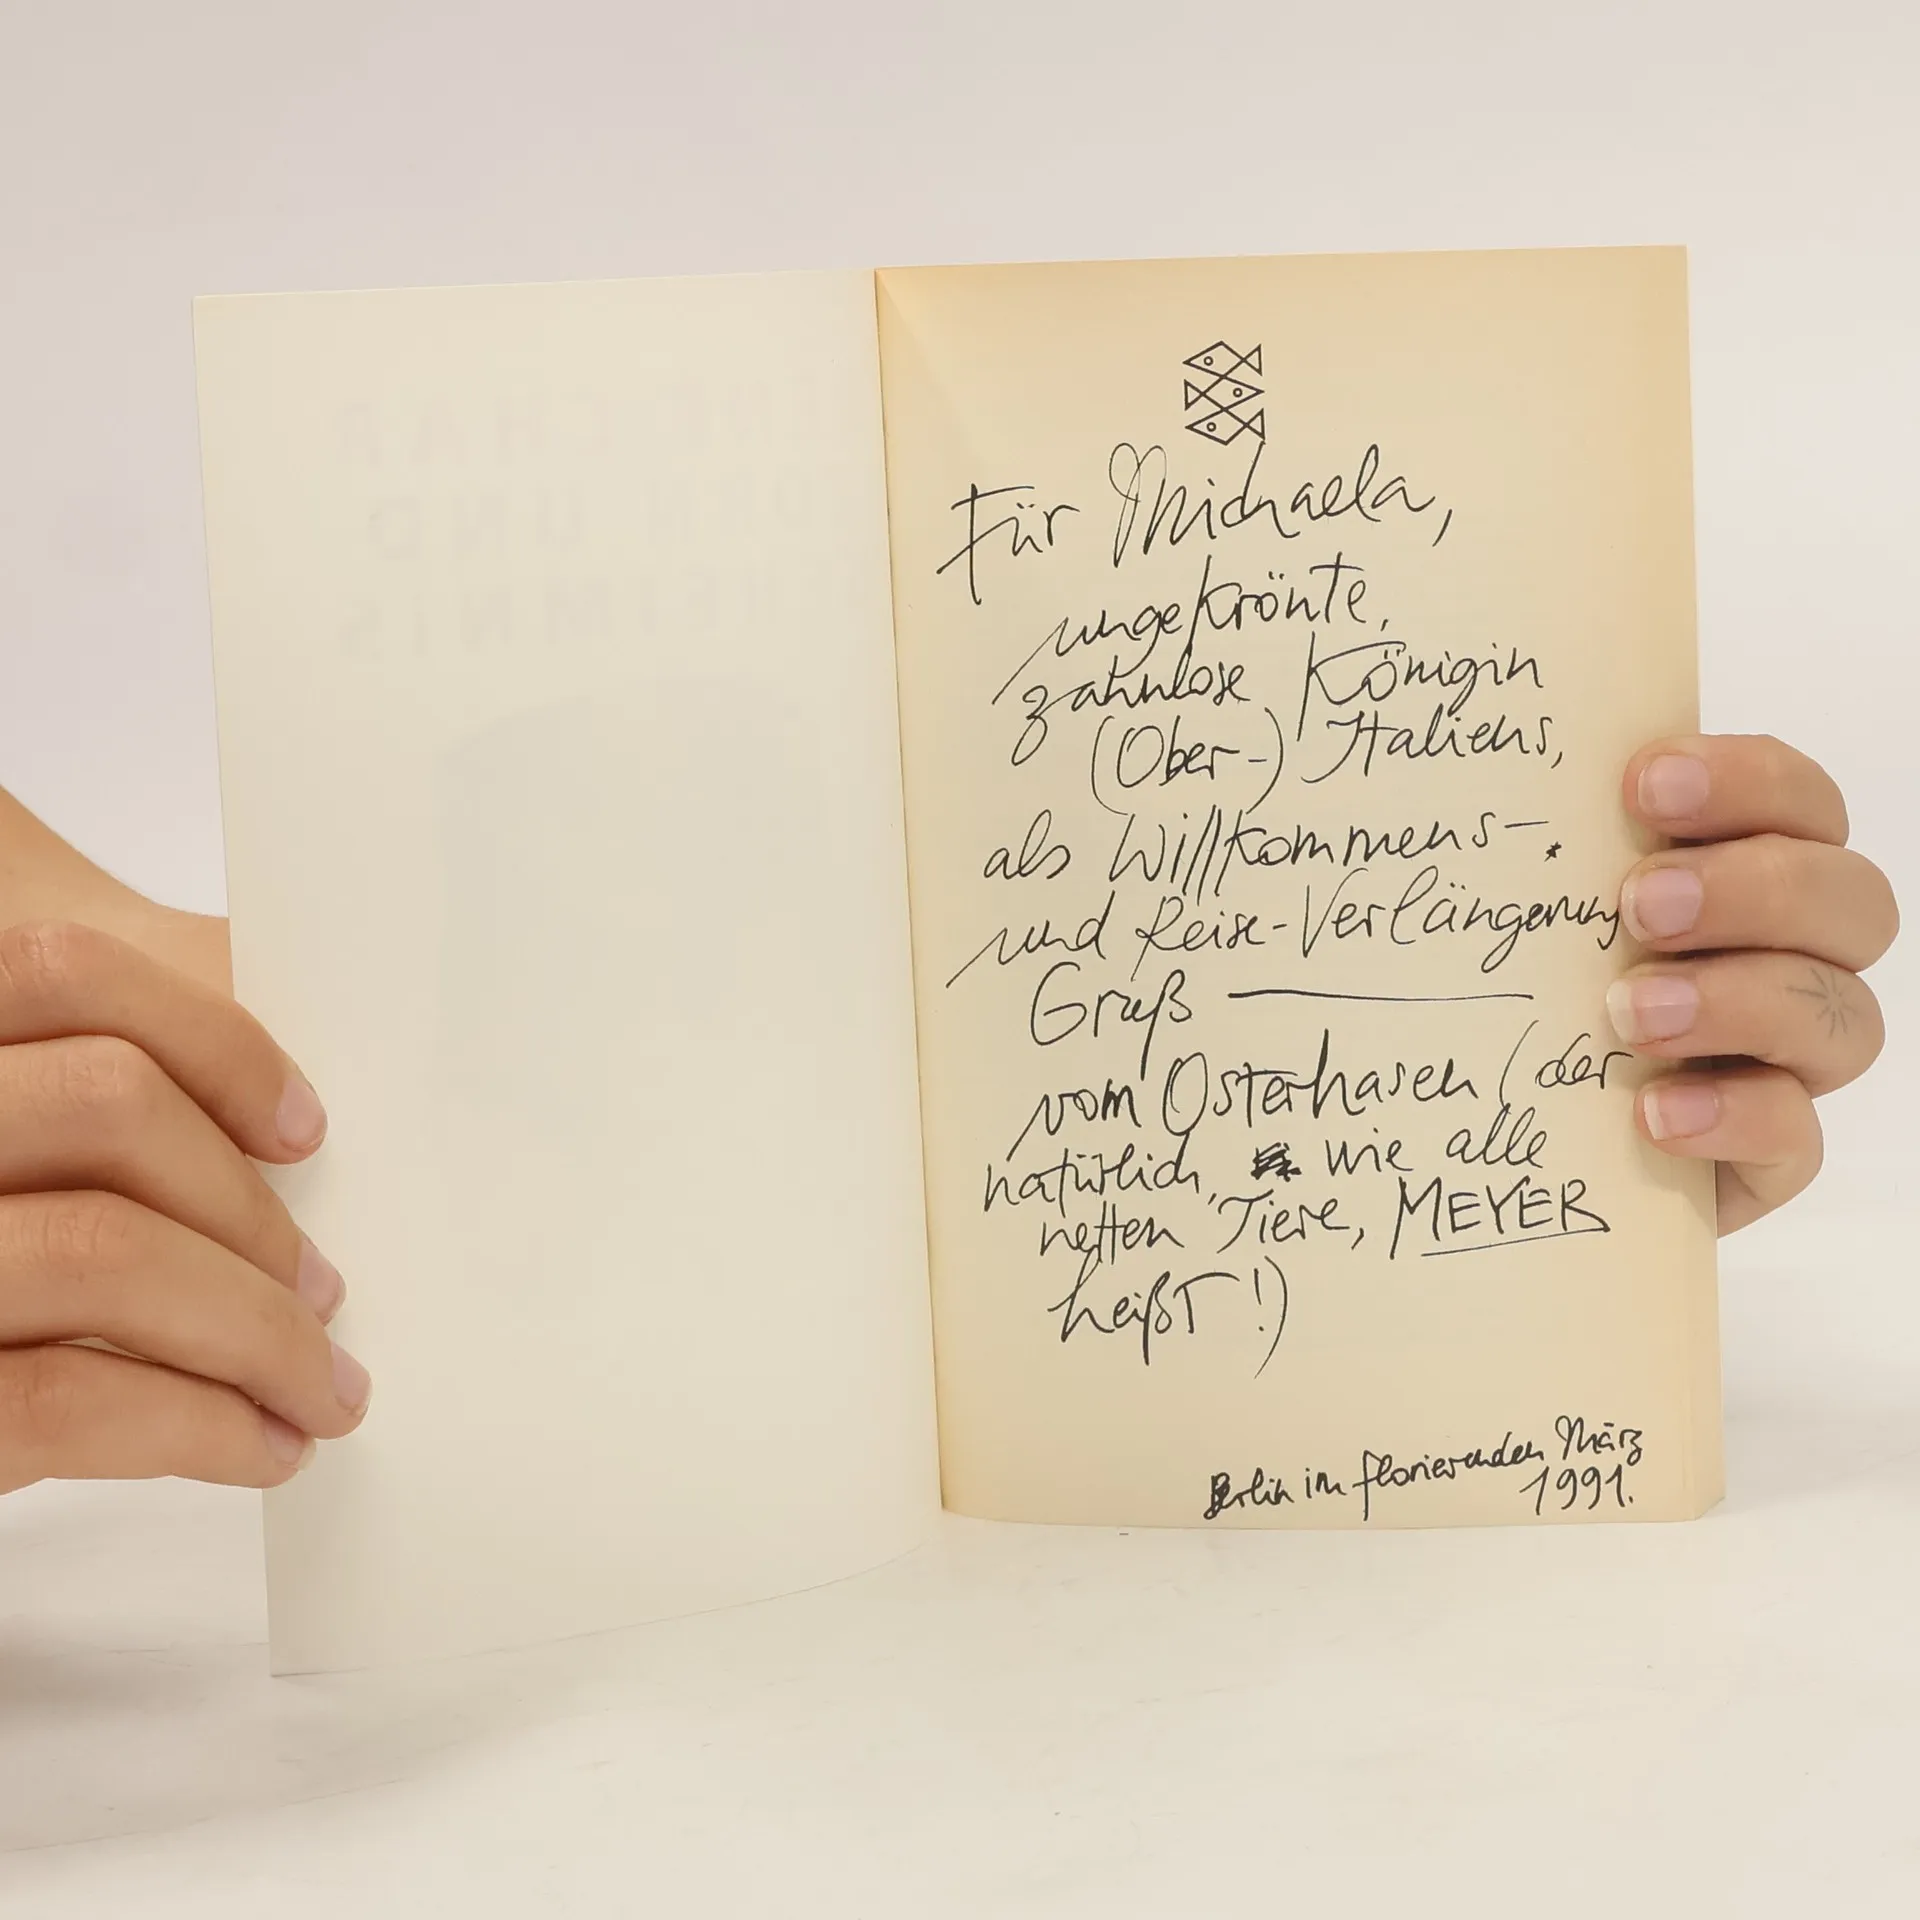 Für Michaela,
ungekrönte,
zahnlose Königin
(Ober-) Italiens,
als Willkommens-
und Reise-Verlängerung
Gruß —
vom Osterhasen (der
natürlich, wie alle
netten Tiere, MEYER
heißt!)
Berlin im florierenden März
1991.